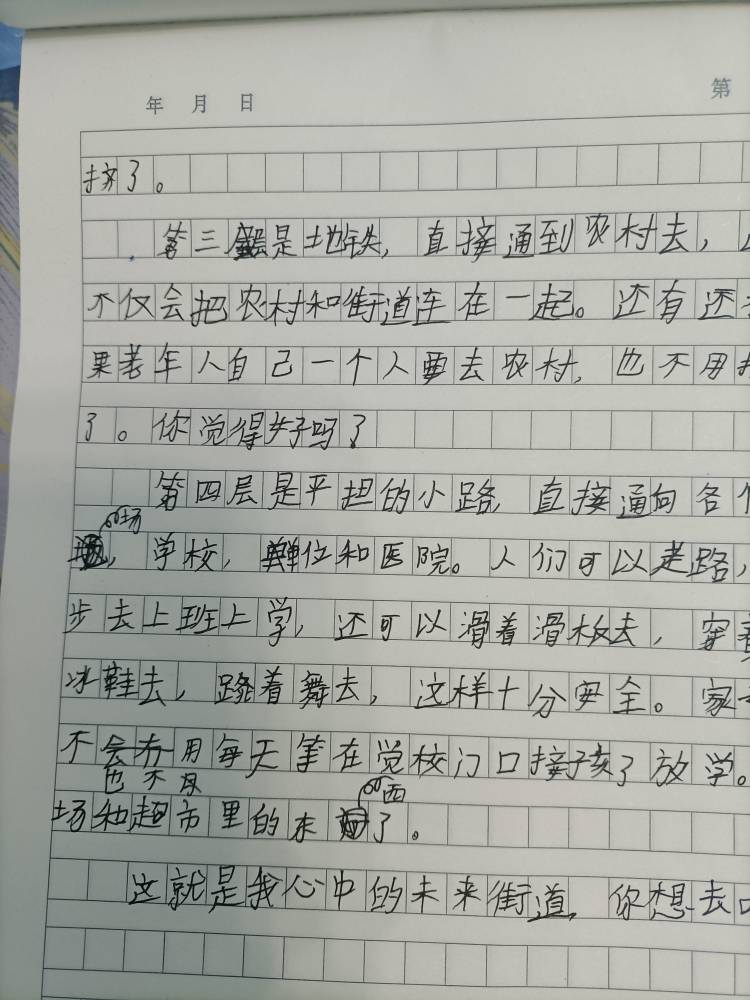 年 月 日 第
挤了。
第三层是地铁，直接通到农村去，
不仅会把农村和街道连在一起。还有还
果老年人自己一个人要去农村，也不用
了。你觉得好吗？
第四层是平担的小路，直接通向各个
场，学校，单位和医院。人们可以走路，
步去上班上学，还可以滑着滑板去，穿着
冰鞋去，跳着舞去，这样十分安全。家
不用每天等在觉校门口接孩子放学。
也不用
场和超市里的东西了。
这就是我心中的未来街道，你想去